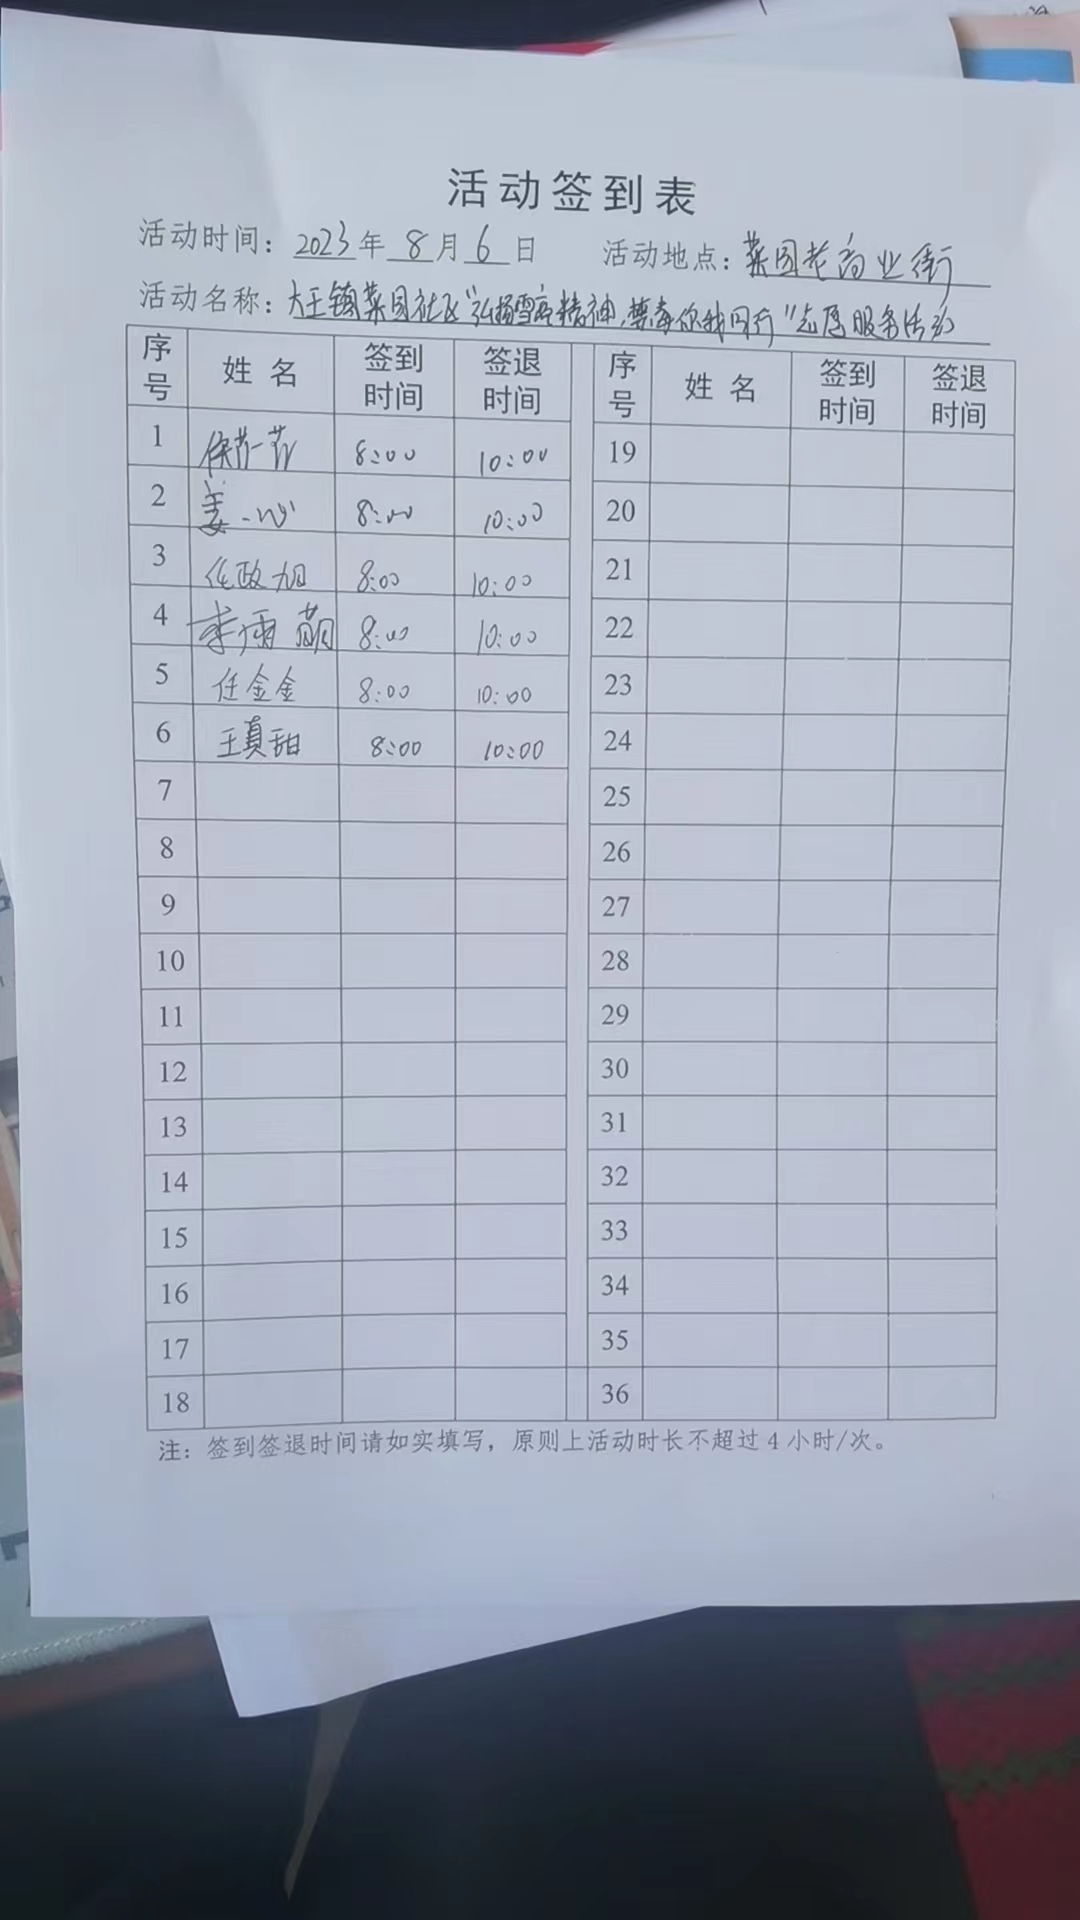 活动签到表
活动时间：2023年 8月 6日 活动地点：菜园老商业街
活动名称：大王镇菜园社区"弘扬雷锋精神，禁毒你我同行"志愿服务活动
序号 姓名 签到时间 签退时间 序号 姓名 签到时间 签退时间
1 8:00 10:00 19
2 姜一心 8:00 10:00 20
3 任政旭 8:00 10:00 21
4 李雨萌 8:00 10:00 22
5 任金金 8:00 10:00 23
6 王真甜 8:00 10:00 24
7 25
8 26
9 27
10 28
11 29
12 30
13 31
14 32
15 33
16 34
17 35
18 36
注：签到签退时间请如实填写，原则上活动时长不超过4小时/次。